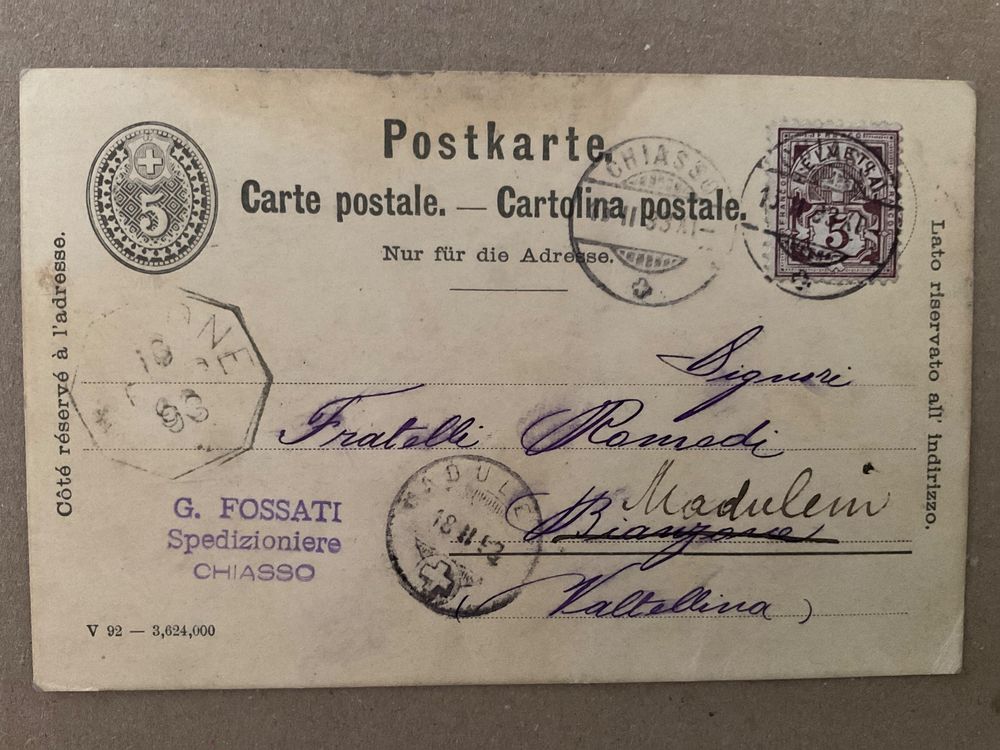 Postkarte.
Carte postale. — Cartolina postale.
Nur für die Adresse.
Côté réservé à l'adresse.
Lato riservato all' indirizzo.
5
HELVETIA
5
CHIASSO
18
93
MADULEIN
18 II 93
Signori
Fratelli Romedi
Madulein
Bianzone
(Valtellina)
G. FOSSATI
Spedizioniere
CHIASSO
V 92 — 3,624,000